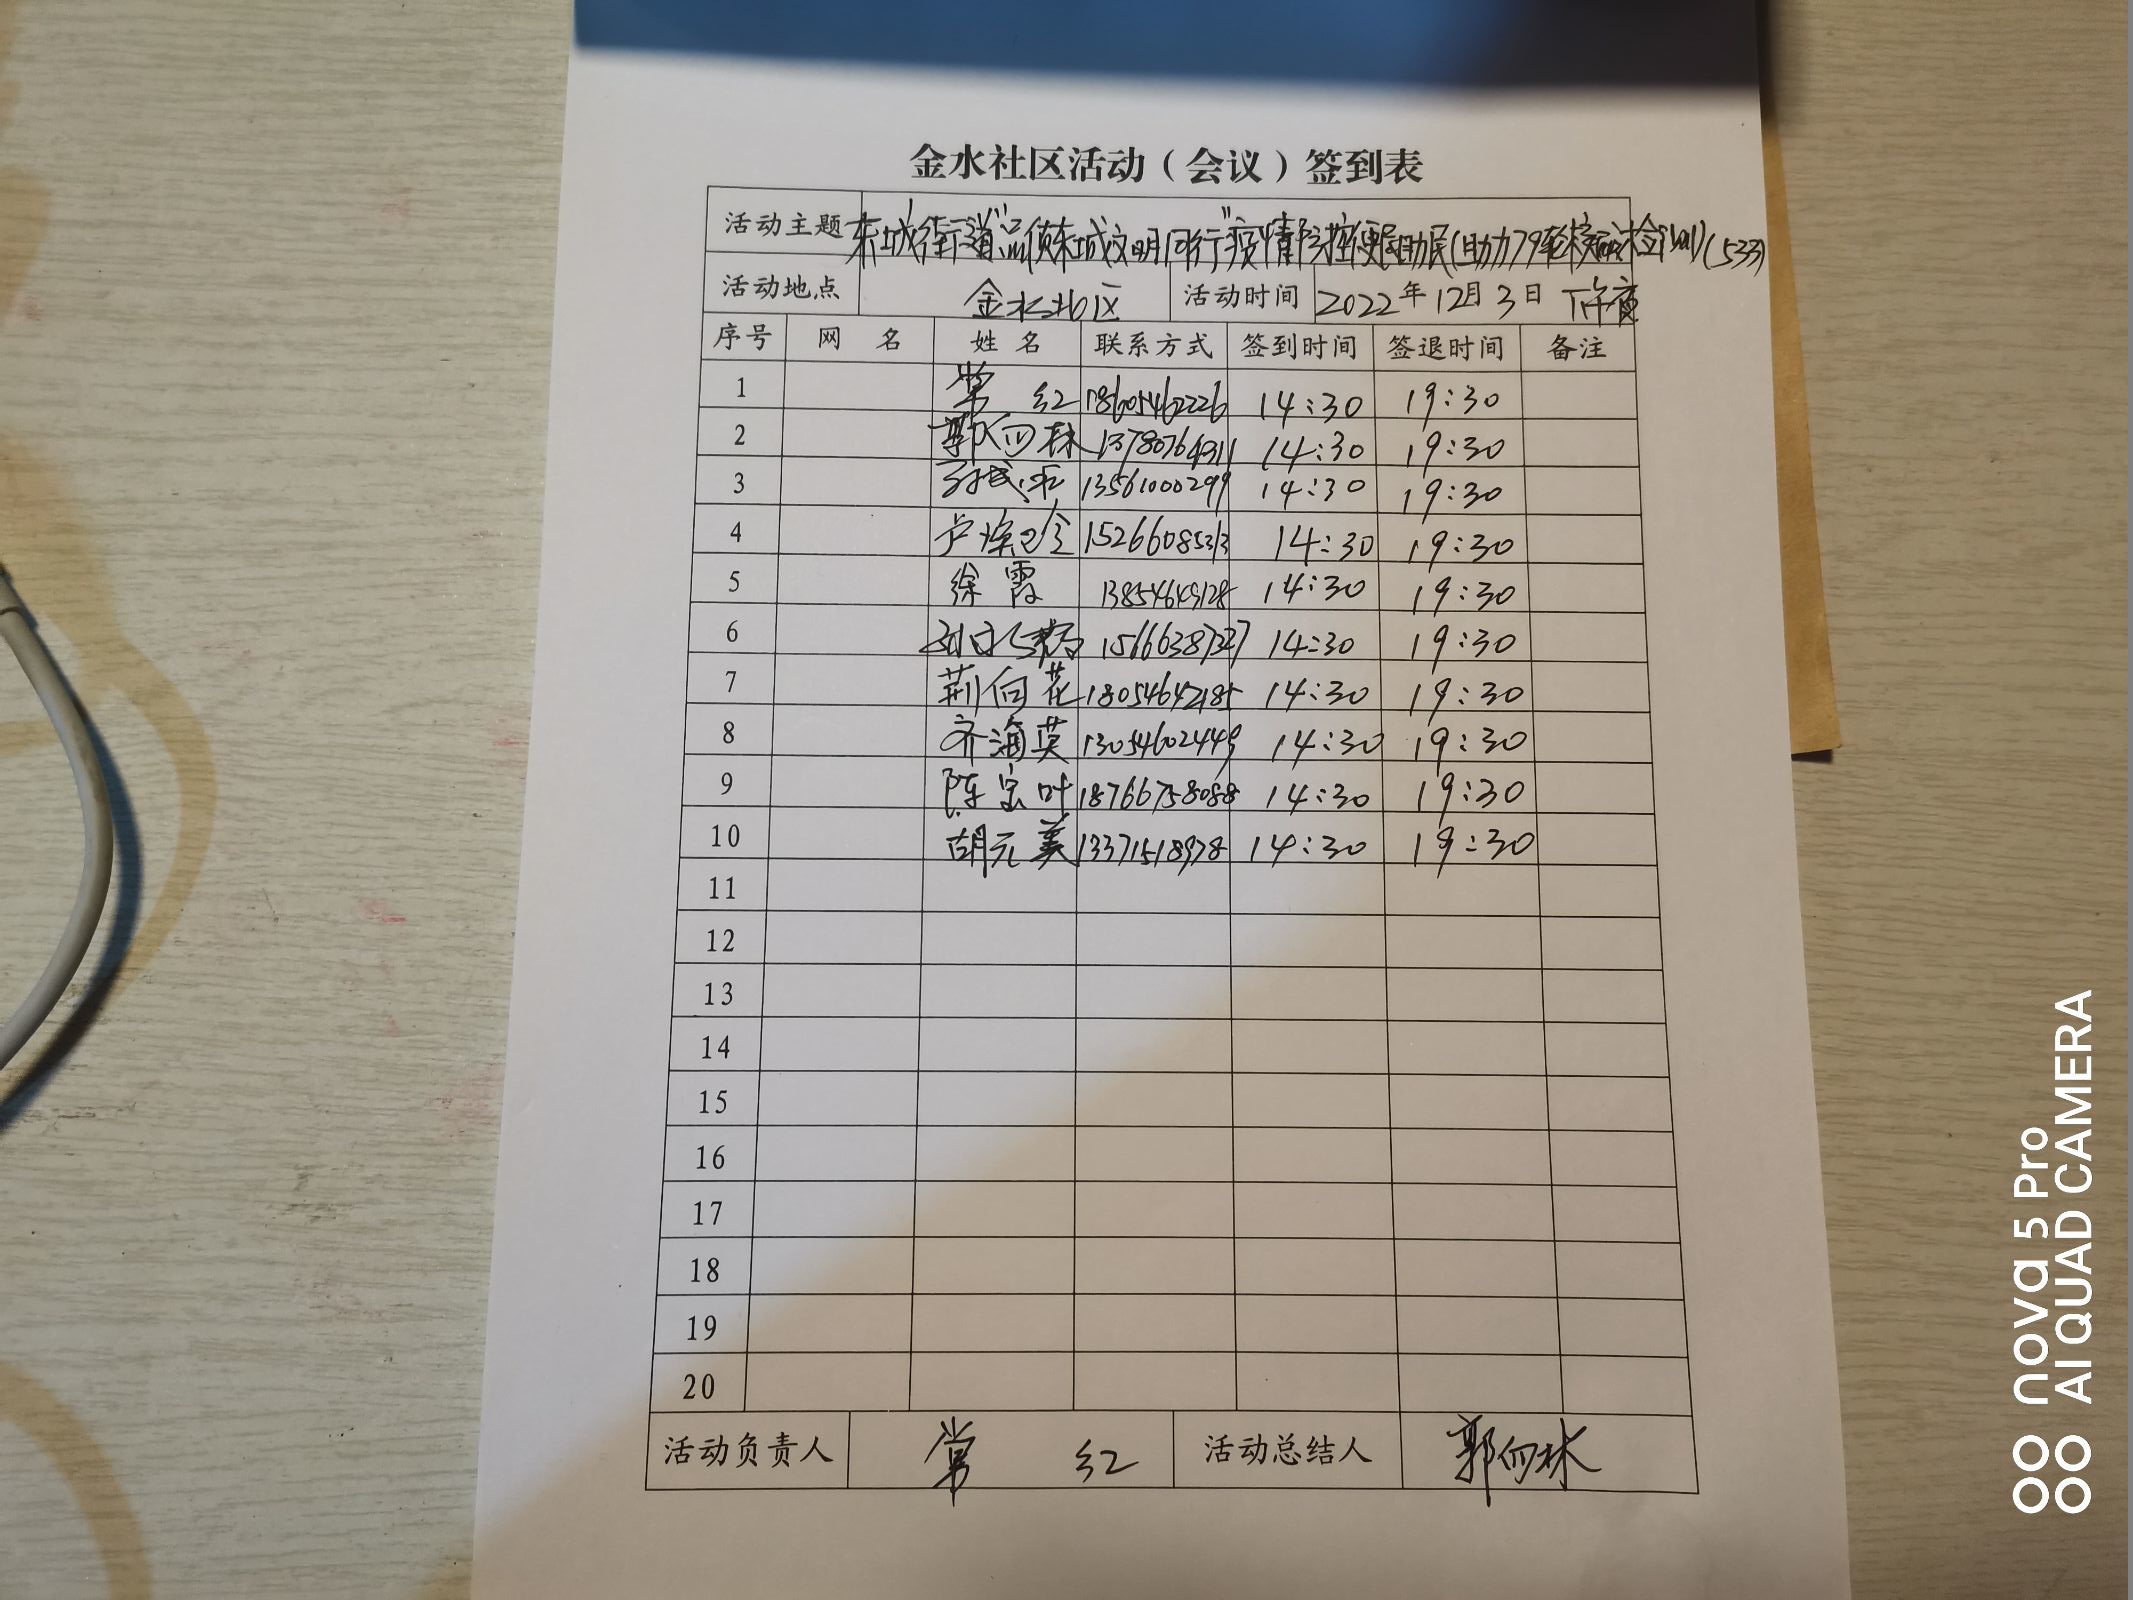 金水社区活动（会议）签到表
活动主题 东城街道"品侦东城文明同行"疫情防控便民助民(助力79轮核酸检测)(533)
活动地点 金水北区 活动时间 2022年12月3日 下午
序号 网 名 姓 名 联系方式 签到时间 签退时间 备注
1 常 红 18605462226 14:30 19:30
2 郭向林 13780764911 14:30 19:30
3 13561000299 14:30 19:30
4 卢 15266085313 14:30 19:30
5 徐霞 13854649128 14:30 19:30
6 15666387327 14:30 19:30
7 荆向花 18054642185 14:30 19:30
8 齐海英 13054602449 14:30 19:30
9 陈宝叶 18766758088 14:30 19:30
10 胡元美 13371518978 14:30 19:30
11
12
13
14
15
16
17
18
19
20
活动负责人 常 红 活动总结人 郭向林
nova 5 Pro
AI QUAD CAMERA